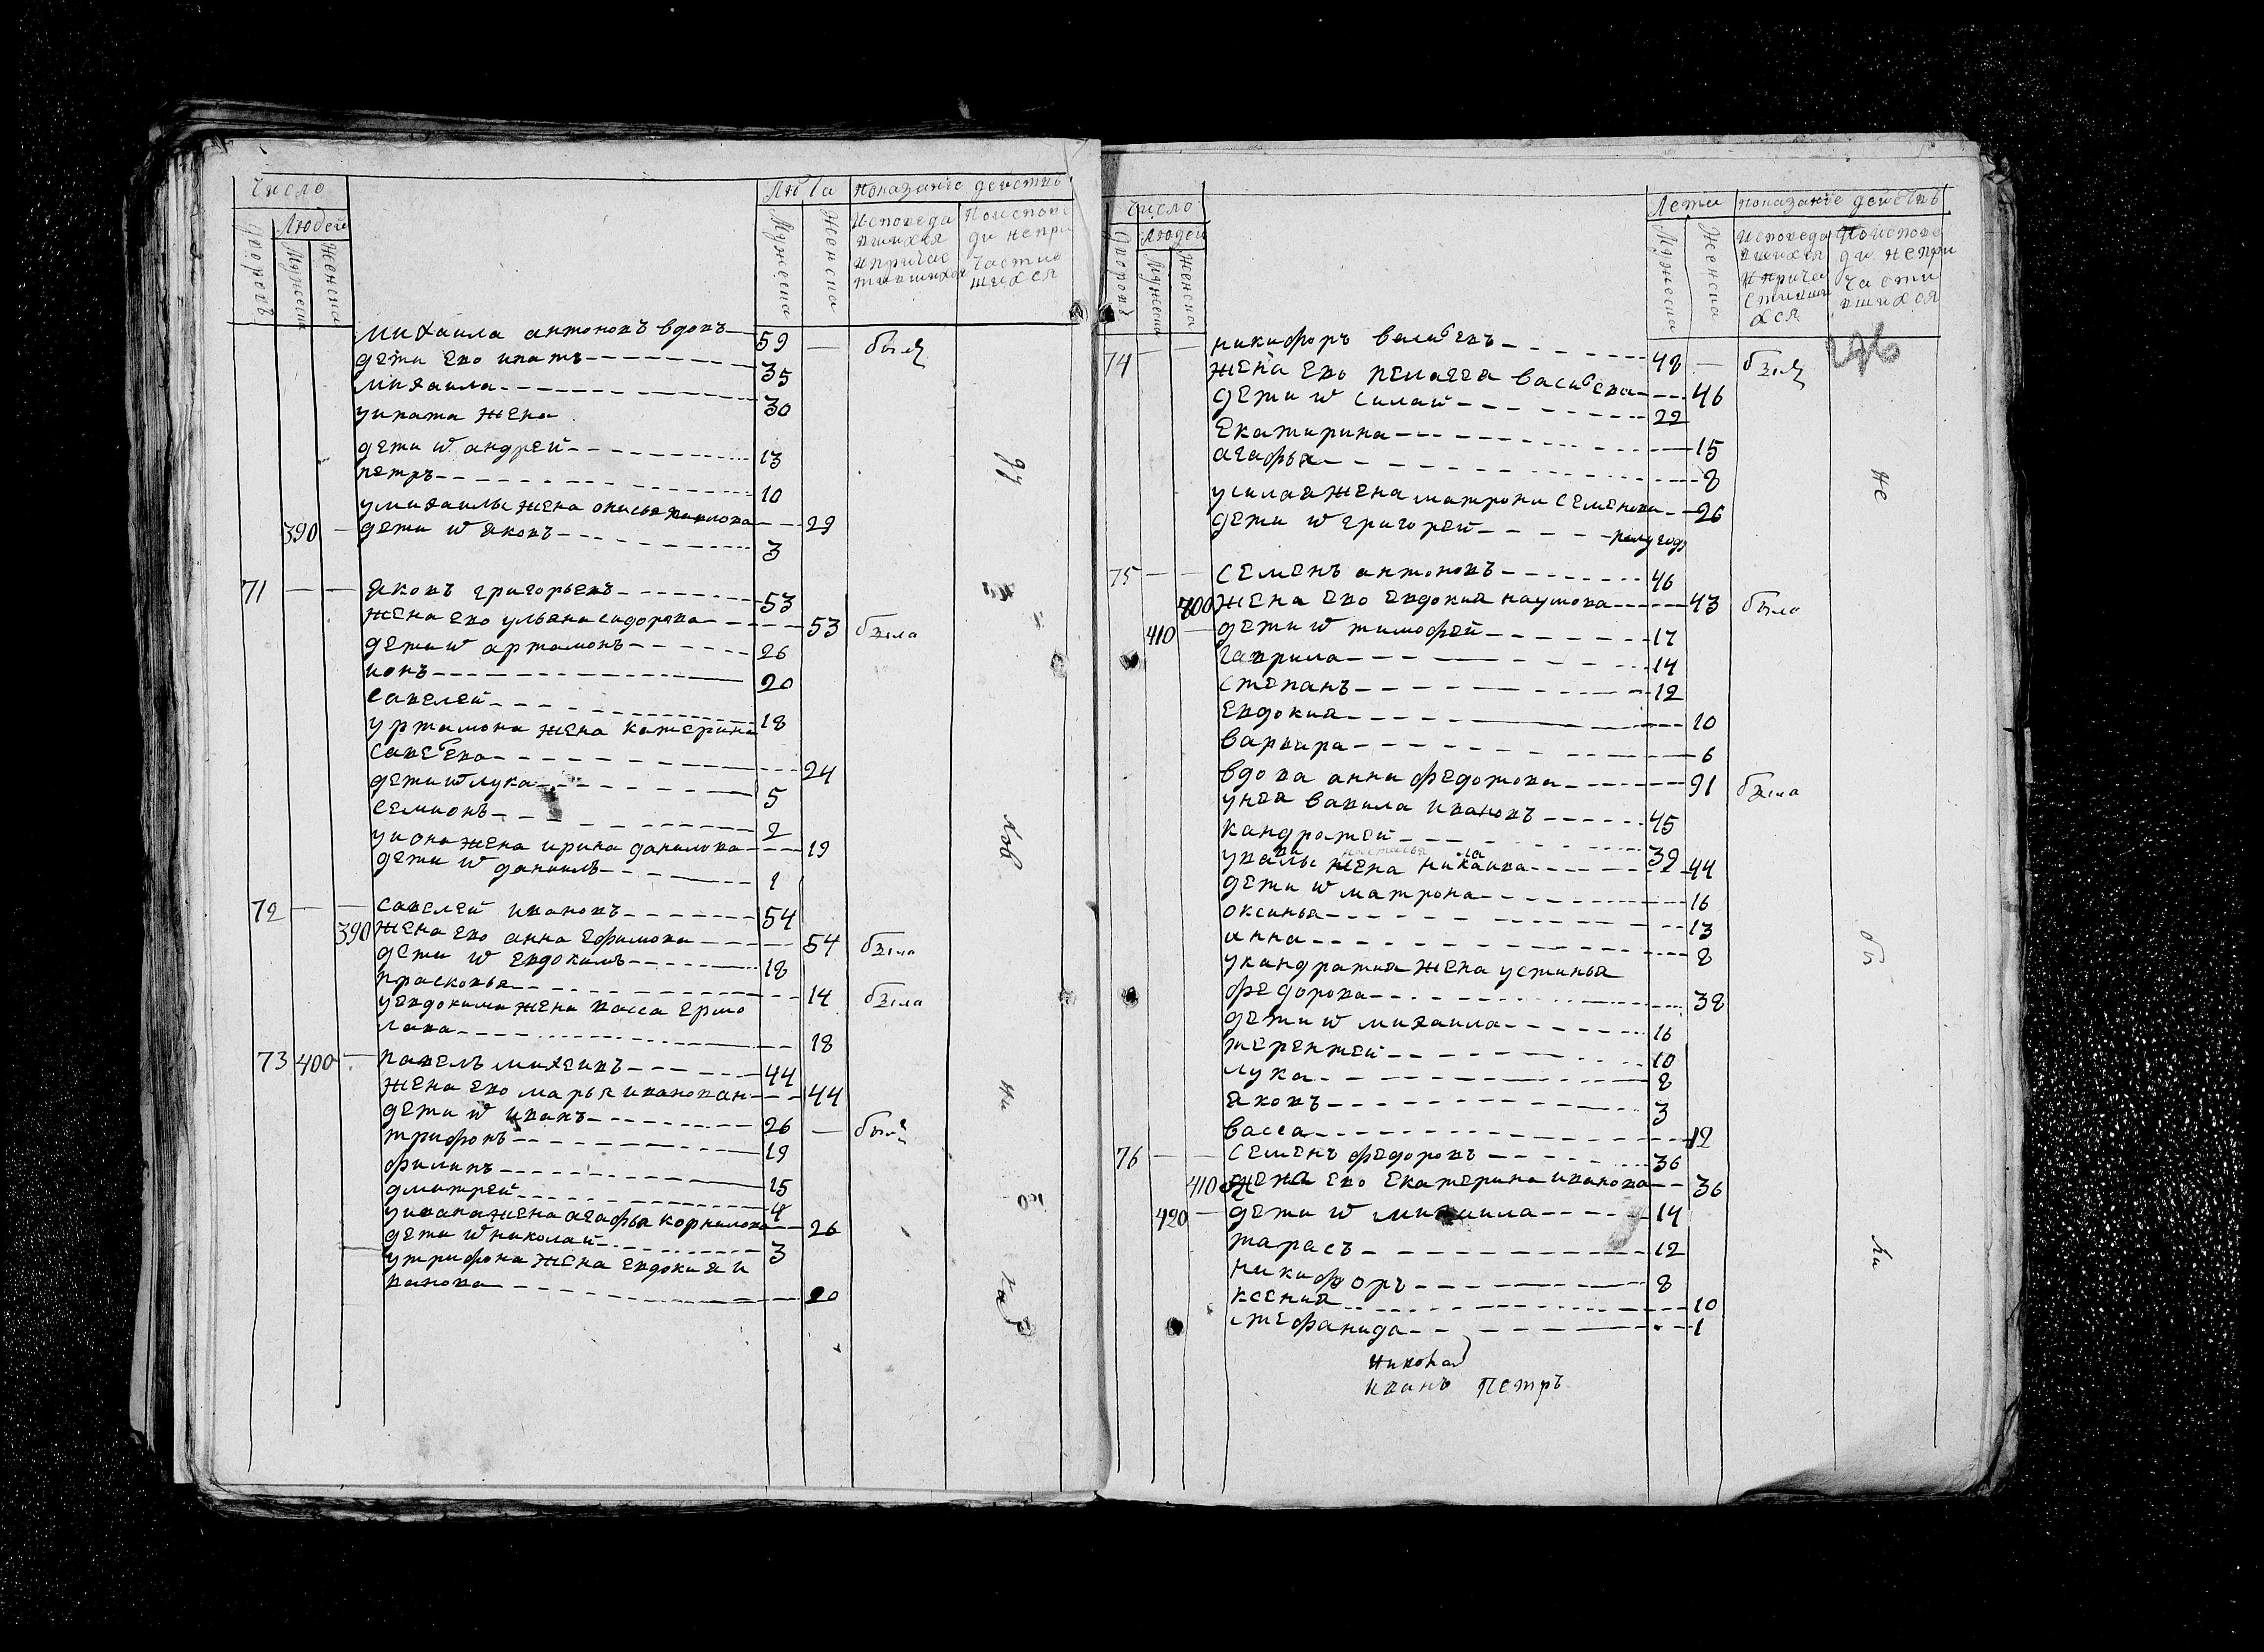 Число
Людей
дворовъ
Мужеска
Женска
Лѣта
Мужеска
Женска
показание действъ
Исповеда
вшихся
и причас
тившихся
По испове
ди непри
частив
шихся
михаила антоновъ вдовъ 59 — былъ
дети ево ипатъ 35
михаила 30
у ипата жена
дети ѿ андрей 13
петръ 10
у михаилы жена онисья павлова 29
390 — дети ѿ яковъ 3
71 — — яковъ григорьевъ 53
жена ево ульяна сидорова 53 была
дети ѿ артамонъ 26
ионъ 20
савелей 18
у ртамона жена катерина
савеева 24
дети ѿ лука 5
семионъ 2
у иона жена ирина данилова 19
дети ѿ даниилъ 1
72 — — савелей ивановъ 54
390 жена ево анна ефимова 54 была
дети ѿ евдокимъ 18
прасковья 14 была
у евдокима жена васса ермо
лава 18
73 400 — павелъ михеивъ 44
жена ево марья иванован 44
дети ѿ иванъ 26 — былъ
трифонъ 19
филипъ 15
дмитрей 4
у ивана жена агафья корнилова 26
дети ѿ николай 3
у трифона жена евдокия и
ванова 20
Число
Людей
дворовъ
Мужеска
Женска
Лета
Мужеска
Женска
показание действъ
Исповеда
вшихся
и прича
стивши
хся
По испове
ди непри
части
вшихся
276
74 — — никифоръ васивевъ 48 — былъ
жена ево пелагея васивева 46
дети ѿ силай 22
Екатирина 15
агафья 8
у силая жена матрона семенова 26
дети ѿ григорей полугоду
75 — — семенъ антоновъ 46
400 жена ево евдокия наумова 43 была
410 — дети ѿ тимофей 17
гаврила 14
степанъ 12
евдокия 10
варвара 6
вдова анна федотова 91 была
у нея вавила ивановъ 45
кандратей 39
у вавилы жена наталья никаива 44
дети ѿ матрона 16
оксинья 13
анна 8
у кандратия жена устинья
федорова 38
дети ѿ михаила 16
терентей 10
лука 8
яковъ 3
васса 12
76 — — семенъ федоровъ 36
410 жена ево Екатерина иванова 36
420 — дети ѿ михаила 14
тарасъ 12
никифоръ 8
ксения 10
стефанида 1
Николай
Иванъ Петръ